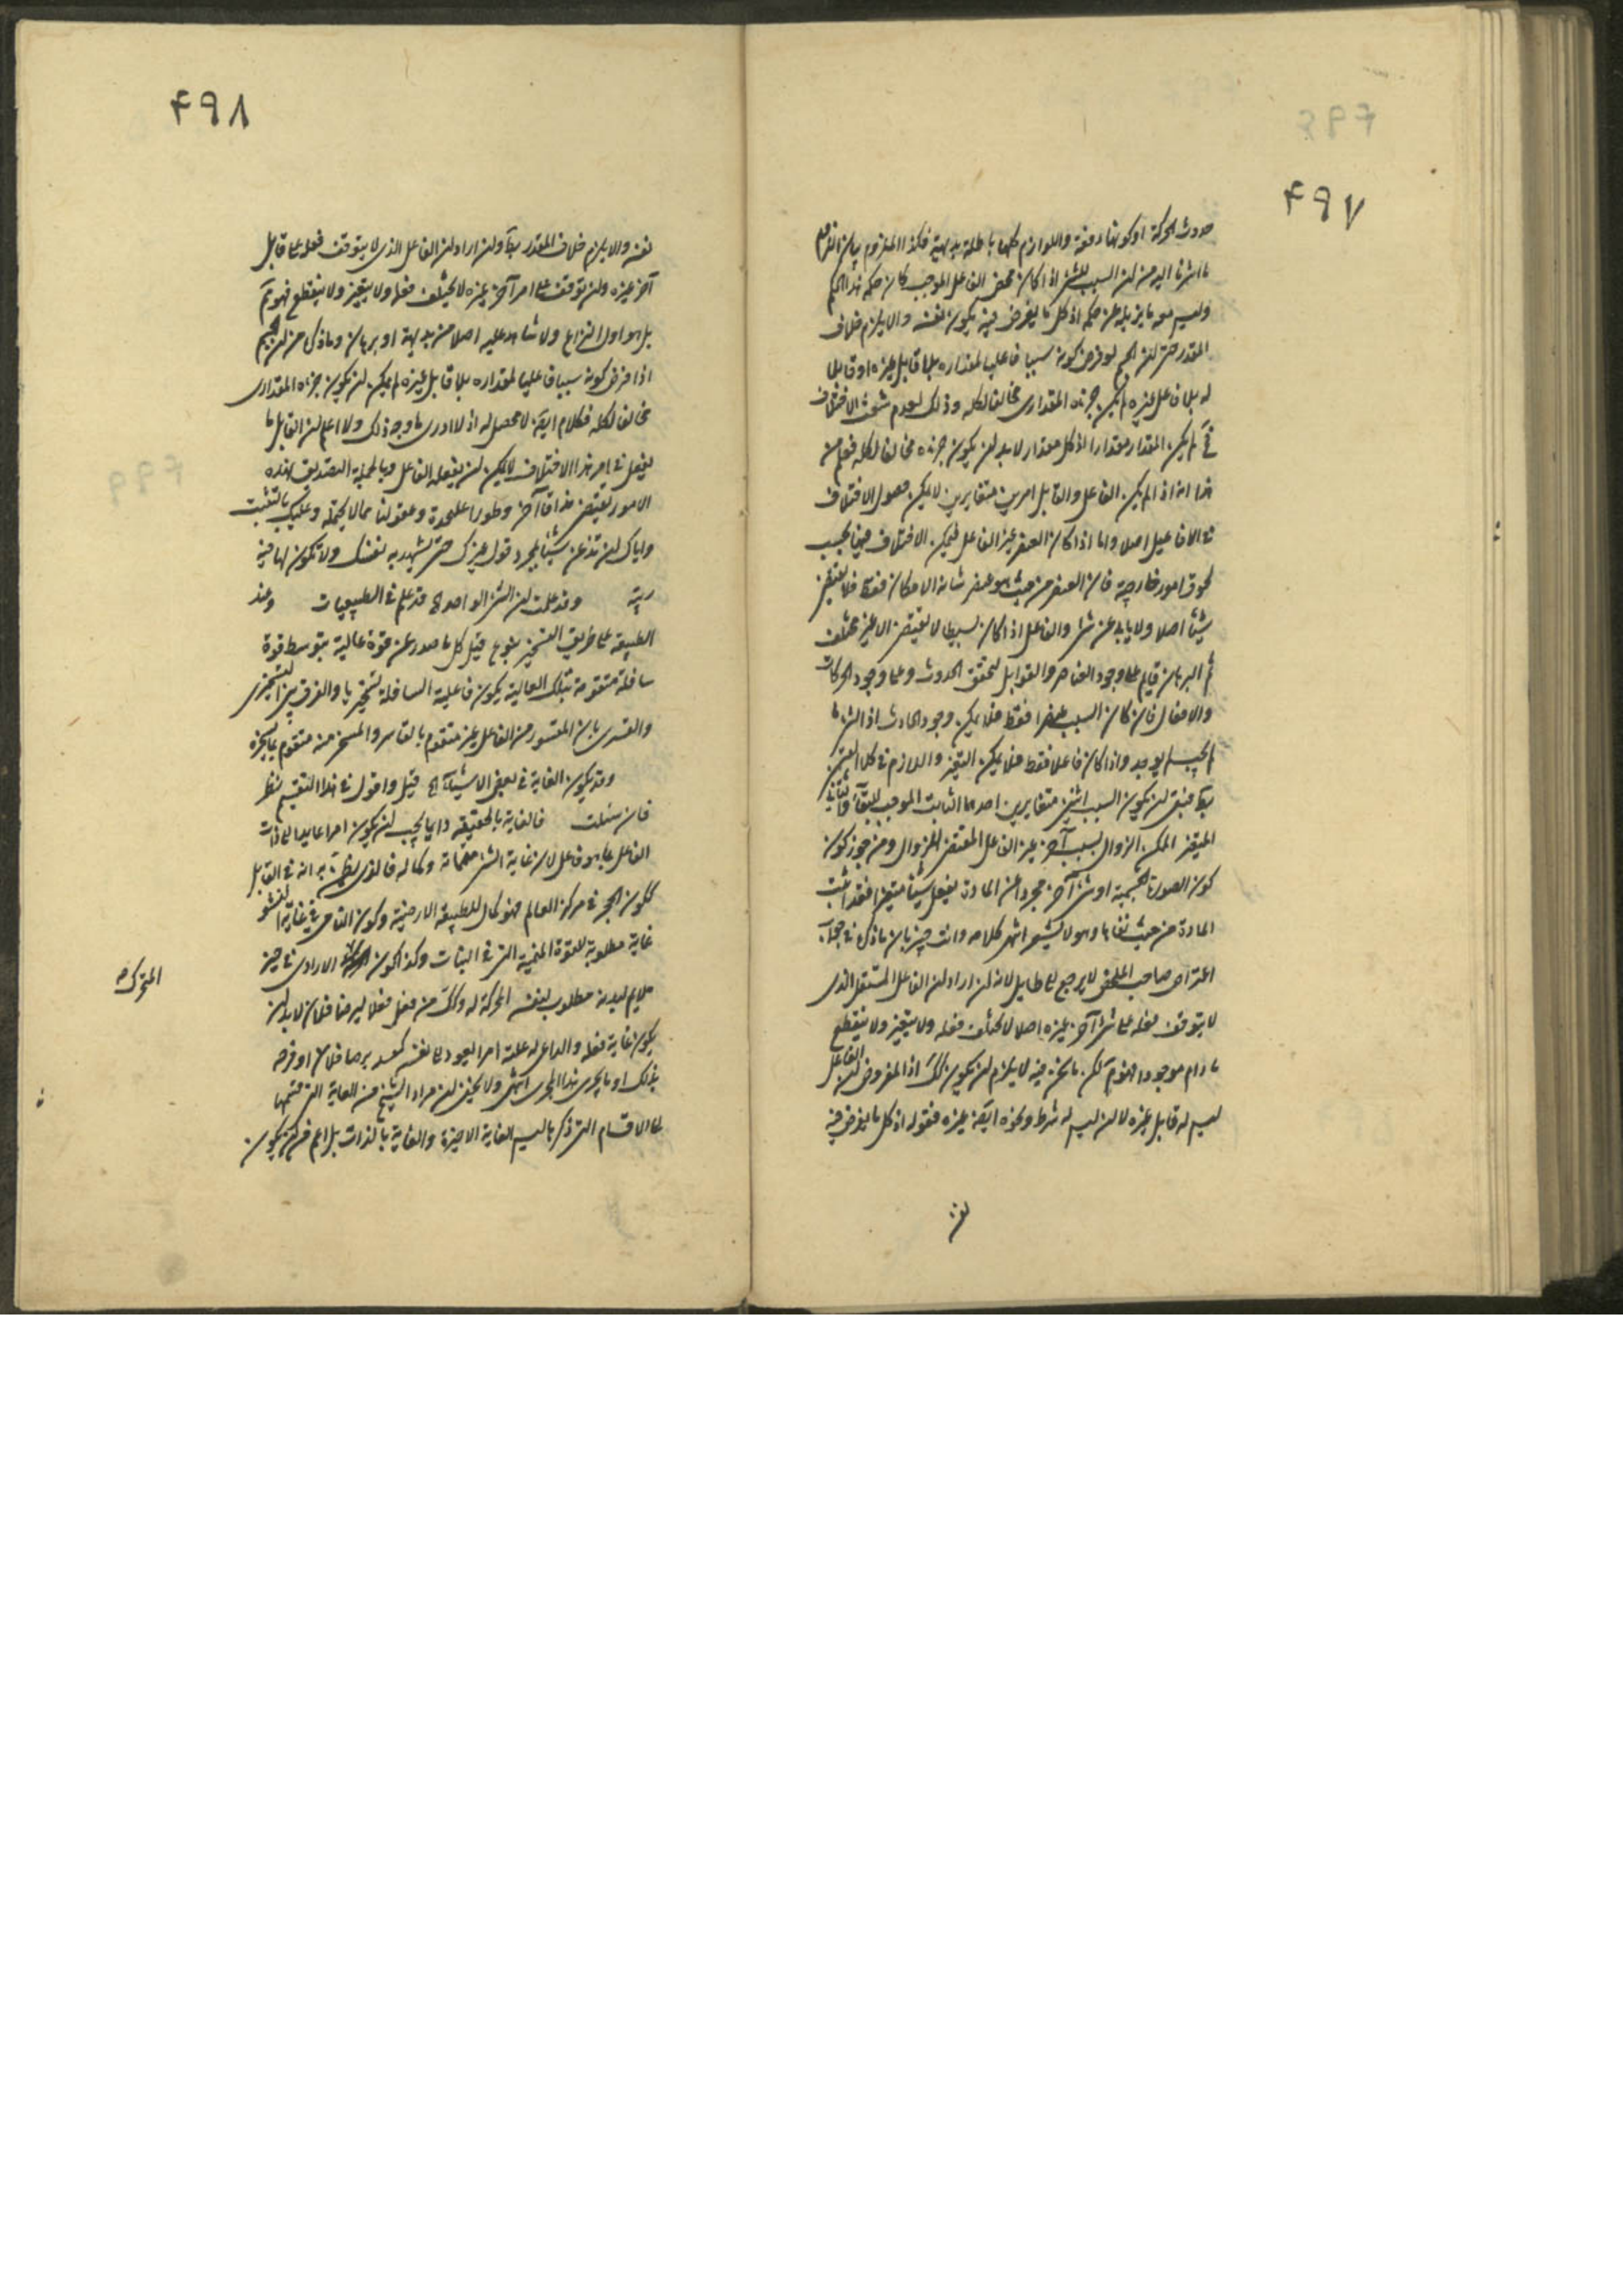 ۴۹۷
حدوث الحركة او كونها دفعة واللوازم كلها باطلة بديهية فكذا الملزوم بيان
ما اشرنا اليه من ان السبب للشئ اذا كان محض الفاعل الموجب كان حكمه هذا الحكم
وليس معه ما يزيله عن حكمه اذ كل ما يفرض فيه يكون نفسه والا يلزم خلاف
المقدر حتى ان الجسم لو فرض كونه سببا فاعليا لمقداره بلا قابل غيره او قابلا
له بلا فاعل غيره لم يكن جزئه المقدارى مخالفا لكله وذلك لعدم الاختلاف
لم يكن المقدار مقدارا اذ كل مقدار لا بد ان يكون جزئه مخالفا لكله فعلم من
هذا انه اذا لم يكن الفاعل والقابل امرين متغايرين لا يمكن حصول الاختلاف
فى الافاعيل اصلا واما اذا كان العنصر غير الفاعل فيمكن الاختلاف فيها بحسب
لحوق امور خارجية فان العنصر من حيث هو عنصر شانه الامكان فقط فلا يقتضى
شيئا اصلا ولا يابى عن شئ والفاعل اذا كان بسيطا لا يقتضى الا غير مختلف
ثم البرهان قايم على وجود العناصر والقوابل لتحقق الحدوث وعلى وجود الحركات
والافعال فان كان السبب عنصرا فقط فلا يمكن وجود الحادث اذ الشئ ما
لم يجب لم يوجد واذا كان فاعلا فقط فلا يمكن التغير واللازم فى كلا القسمين
فبقى ان يكون السبب اثنين متغايرين احدهما الثابت الموجب للبقآء والثانى
المتغير الممكن الزوال بسبب آخر غير الفاعل المقتضى للزوال ومن جوز كون
كون الصورة الجسمية او شئ آخر مجردا عن المادة يفعل شيئا متغيرا فقد اثبت
المادة من حيث نفاها وهو لا يشعر انتهى كلامه وانت خبير بان ما ذكره فى جواب
اعتراض صاحب الملخص لا يرجع الى طايل لانه ان اراد ان الفاعل المستقل الذى
لا يتوقف فعله على شئ آخر غيره اصلا لا يختلف فعله ولا يتغير ولا ينقطع
ما دام موجودا فهو مسلم لكن ما نحن فيه لا يلزم ان يكون كذلك اذ المفروض ان الفاعل
ليس له قابل غيره لا ان ليس له شرط ونحوه ايضا غيره فقوله اذ كل ما يفرض فيه
۴۹۸
نفسه والا يلزم خلاف المقدر وان اراد ان الفاعل الذى لا يتوقف فعله على قابل
آخر غيره وان توقف على امر آخر غيره لا يختلف فعله ولا يتغير ولا ينقطع فهو مم
بل هو اول النزاع ولا شاهد عليه اصلا من بديهة او برهان وما ذكره من ان الجسم
اذا فرض كونه سببا فاعليا لمقداره بلا قابل غيره لم يمكن ان يكون جزءه المقدارى
مخالفا لكله فكلام ايضا لا محصل له اذ لا ادرى ما وجه ذلك ولا اعلم ان القابل ما
يفعل فى امر هذا الاختلاف لا يمكن ان يفعله الفاعل وبالجملة التصديق بهذه
الامور يقتضى مذاقا آخر وطورا عليحدة وعقولنا مما لا يحتمله وعليك بالتثبت
واياك ان تذعن شيئا بمجرد قول غيرك حتى تشهد به نفسك ولا تكون لها فيه
ريبة وقد علمت ان الشئ الواحد الخ قد علم فى الطبيعيات وعند
الطبيعة على طريق التسخير بنوع قيل كل ما صدر عن قوة عالية بتوسط قوة
سافلة متقومة بتلك العالية يكون فاعلية السافلة تسخيريا والفرق بين التسخيرى
والقسرى بان المقسور من الفاعل غير متقوم بالقاسر والمسخر منه متقوم بما يسخره
وقد يكون الغاية فى بعض الاشيآء الخ قيل واقول فى هذا التقسيم نظر
فان سئلت فالغاية بالحقيقة دايما يجب ان يكون امرا عايدا الى ذات
الفاعل بما هو فاعل لان غاية الشئ متممانه وكماله فالذى انه فى القابل
ككون الحجر فى مركز العالم فهو كمال للطبيعة الارضية وكون النامى فى غاية النشو
غاية مطلوبة للقوة المنمية التى فى النبات وكذا كون المتحرك الارادى فى حيز
ملايم لبدنه مطلوب لنفسه المحركة له وكذلك من فعل فعلا ليرضا فلان لا بد ان
يكون غاية فعله والداعى له عليه امرا يعود الى نفسه كقصد برضا فلان او فرحه
بذلك او ما يجرى هذا المجرى انتهى ولا يخفى ان مراد الشيخ من الغاية التى قسمها
الى الاقسام التى ذكرها ليس الغاية الاخيرة والغاية بالذات بل اعم من ان يكون
المتحرك